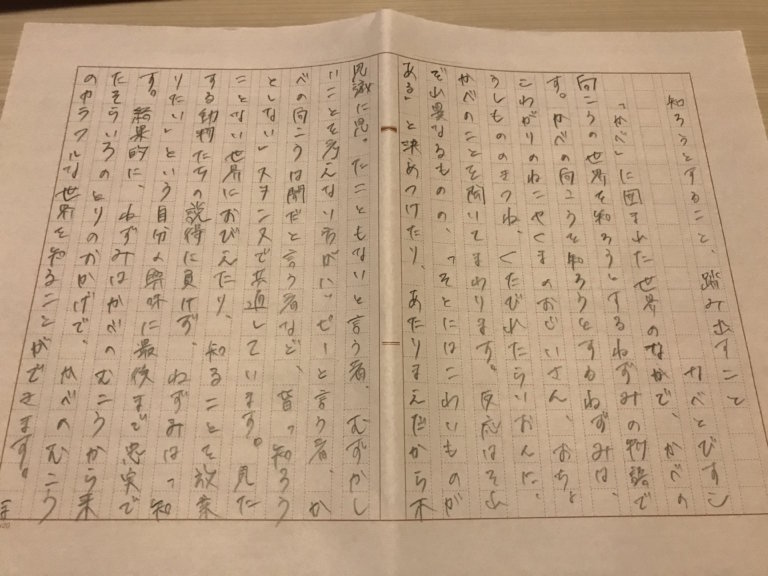 知ろうとすること、踏み出すこと
かべとびすし
「かべ」に囲まれた世界のなかで、かべの
向こうの世界を知ろうとするねずみの物語で
す。かべの向こうを知ろうとするねずみは、
こわがりのねこやくまのおじいさん、おちょ
うしもののきつね、くたびれたらいおんに、
かべのことを聞いてまわります。反応はそれ
ぞれ異なるものの、「そとにはこわいものが
ある」と決めつけたり、あたりまえだから不
思議に思ったこともないと言う者、むずかし
いことを考えない方がハッピーと言う者、か
べの向こうは闇だと言う者など、皆「知ろう
としない」スタンスで共通しています。見た
ことない世界におびえたり、知ることを放棄
する動物たちの説得に負けず、ねずみは「知
りたい」という自分の興味に最後まで忠実で
す。結果的に、ねずみはかべのむこうから来
たそらいろのとりのおかげで、かべのむこう
のカラフルな世界を知ることができます。